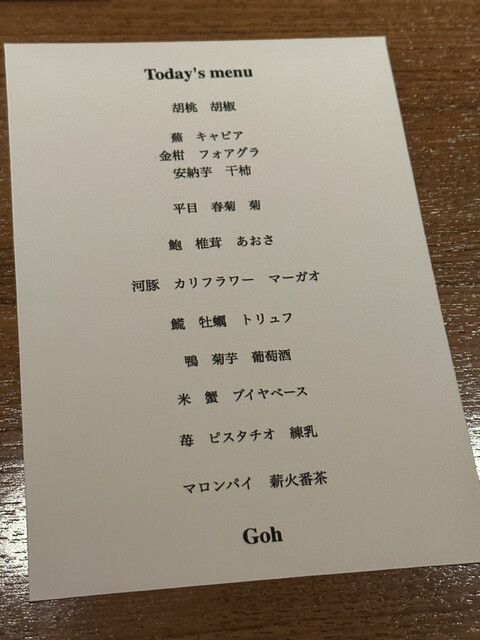 Today's menu
胡桃　胡椒
蕪　キャビア
金柑　フォアグラ
安納芋　干柿
平目　春菊　菊
鮑　椎茸　あおさ
河豚　カリフラワー　マーガオ
鱈　牡蠣　トリュフ
鴨　菊芋　葡萄酒
米　蟹　ブイヤベース
苺　ピスタチオ　練乳
マロンパイ　薪火番茶
Goh